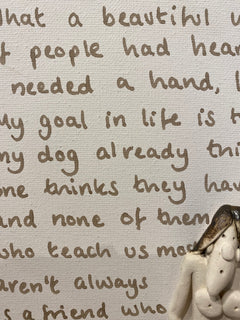 What a beautiful w
f people had hear
needed a hand, l
My goal in life is t
my dog already thi
one thinks they hav
and none of them
who teach us mo
aren't always
s a friend who